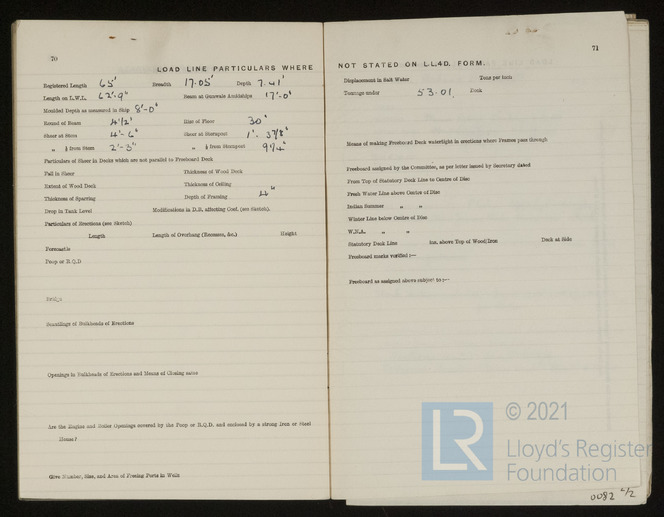 70
LOAD LINE PARTICULARS WHERE
Registered Length 65' Breadth 17.05' Depth 7.41'
Length on L.W.L. 62'-9" Beam at Gunwale Amidships 17'-0"
Moulded Depth as measured in Ship 8'-0"
Round of Beam 4½" Rise of Floor 30"
Sheer at Stem 4'-6" Sheer at Sternpost 1'-3⅞"
" ¼ from Stem 2'-3" " ¼ from Sternpost 9¼"
Particulars of Sheer in Decks which are not parallel to Freeboard Deck
Fall in Sheer Thickness of Wood Deck
Extent of Wood Deck Thickness of Ceiling
Thickness of Sparring Depth of Framing 4"
Drop in Tank Level Modifications in D.B. affecting Coef. (see Sketch).
Particulars of Erections (see Sketch)
Length Length of Overhang (Recesses, &c.) Height
Forecastle
Poop or R.Q.D
Bridge
Scantlings of Bulkheads of Erections
Openings in Bulkheads of Erections and Means of Closing same
Are the Engine and Boiler Openings covered by the Poop or R.Q.D. and enclosed by a strong Iron or Steel
House?
Give Number, Size, and Area of Freeing Ports in Wells
71
NOT STATED ON L.L.4D. FORM.
Displacement in Salt Water Tons per Inch
Tonnage under 53.01 Deck
Means of making Freeboard Deck watertight in erections where Frames pass through
Freeboard assigned by the Committee, as per letter issued by Secretary dated
From Top of Statutory Deck Line to Centre of Disc
Fresh Water Line above Centre of Disc
Indian Summer " "
Winter Line below Centre of Disc
W.N.A. " "
Statutory Deck Line ins. above Top of Wood/Iron Deck at Side
Freeboard marks verified :—
Freeboard as assigned above subject to :—
LR
© 2021
Lloyd's Register
Foundation
0082 2/2